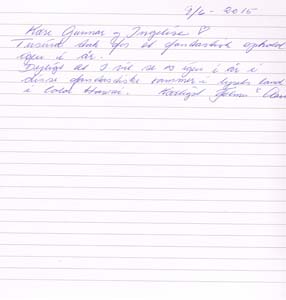 9/6 - 2015
Kære Gunnar og Ingelise ♡
Tusind tak for et fantastisk ophold
igen i år.
Dejligt at I vil se os igen i år i
disse fantastiske rammer i lysets land
i Cold Hawaii. Kærligst